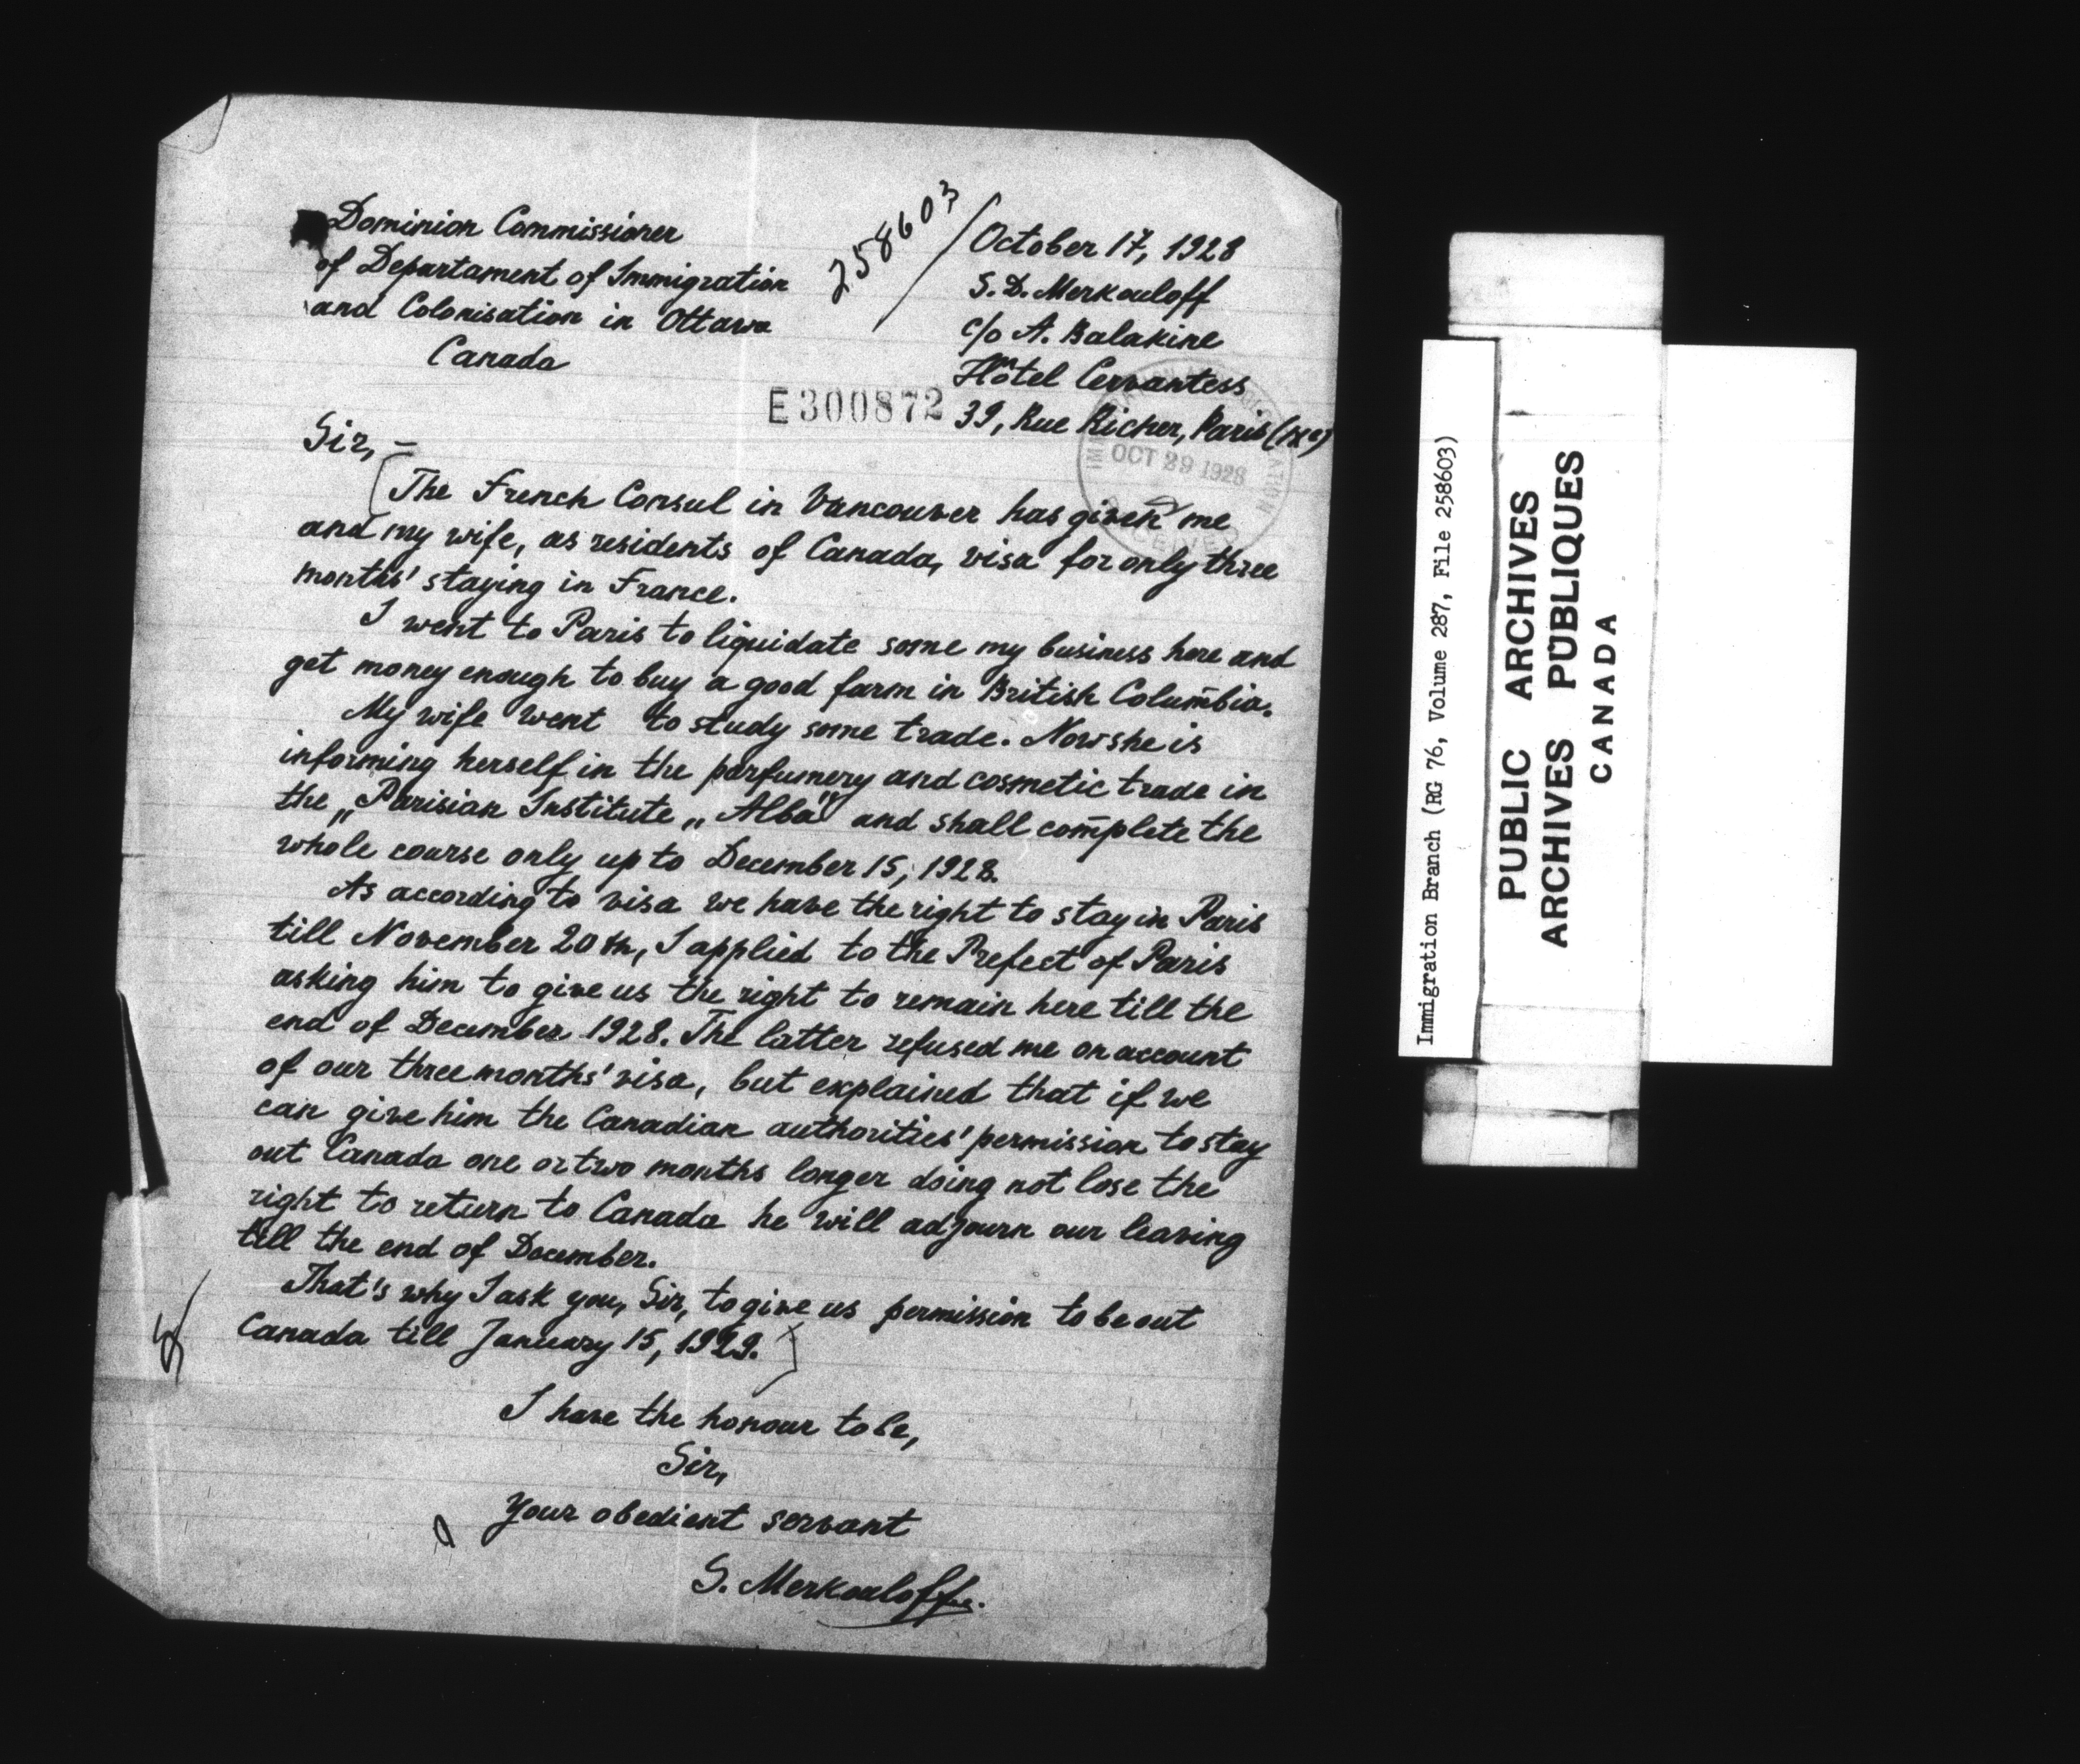 Dominion Commissioner
of Departament of Immigration
and Colonisation in Ottawa
Canada
258603
October 17, 1928
S. D. Merkouloff
c/o A. Balakine
Hôtel Cervantess
39, Rue Richer, Paris (IXe)
E300872
OCT 29 1928
RECEIVED
Sir, –
The French Consul in Vancouver has given me
and my wife, as residents of Canada, visa for only three
months' staying in France.
I went to Paris to liquidate some my business here and
get money enough to buy a good farm in British Columbia.
My wife went to study some trade. Now she is
informing herself in the parfumery and cosmetic trade in
the „Parisian Institute „Alba" and shall complete the
whole course only up to December 15, 1928.
As according to visa we have the right to stay in Paris
till November 20th, I applied to the Prefect of Paris
asking him to give us the right to remain here till the
end of December 1928. The latter refused me on account
of our three months' visa, but explained that if we
can give him the Canadian authorities' permission to stay
out Canada one or two months longer doing not lose the
right to return to Canada he will adjourn our leaving
till the end of December.
That's why I ask you, Sir, to give us permission to be out
Canada till January 15, 1929.
I have the honour to be,
Sir,
Your obedient servant
S. Merkouloff.
Immigration Branch (RG 76, Volume 287, File 258603)
PUBLIC ARCHIVES
ARCHIVES PUBLIQUES
CANADA